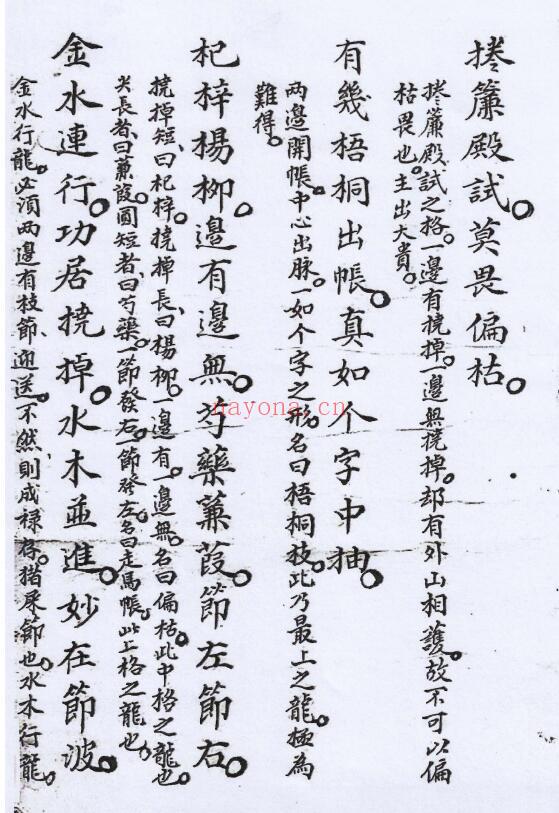 捲簾殿試。莫畏偏枯。
捲簾殿試之格。一邊有撓掉。一邊無撓掉。却有外山相護。故不可以偏
枯畏也。主出大貴。
有幾梧桐出帳。真如个字中抽。
兩邊開帳。中心出脉。一如个字之形。名曰梧桐枝。此乃最上之龍。極為
難得。
杞梓楊柳。邊有邊無。芍藥蒹葭。節左節右。
撓掉短、曰杞梓。撓掉長、曰楊柳。一邊有。一邊無。名曰偏枯。此中格之龍也。
尖長者、曰蒹葭。圓短者、曰芍藥。一節發右。一節發左。名曰走馬帳。此上格之龍也。
金水連行。功居撓掉。水木並進。妙在節波。
金水行龍。必須兩邊有枝節、迎送。不然、則成祿存。猪屎節也。水木行龍。
nayona.cn